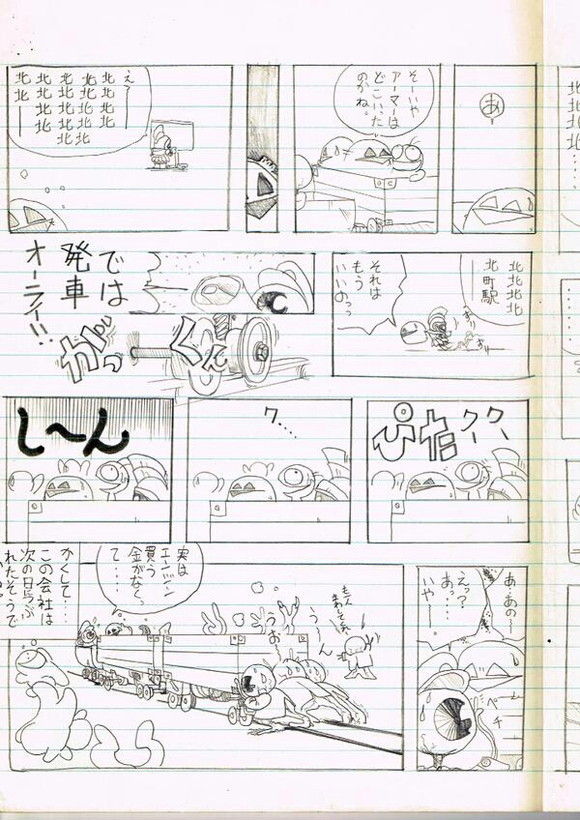 あ
そーいや
アーマーは
どこいった
のかね。
え〜ー
北北北北
北北北北
北北北北
北北北北
北北ー
北北北北
北町駅
ー
それは
もう
いいのっっ
では
発車
オーライ!!
がっ
くん
ぴた
クク、
ク....
し〜ん
あ、あのー
えっ?
あっ.....
いやー
ペチ
実は
エンジン
買う
金がなくっ
て....
うお
う〜ん
かくして....
この会社は
次の日号ぶ
れたそうで